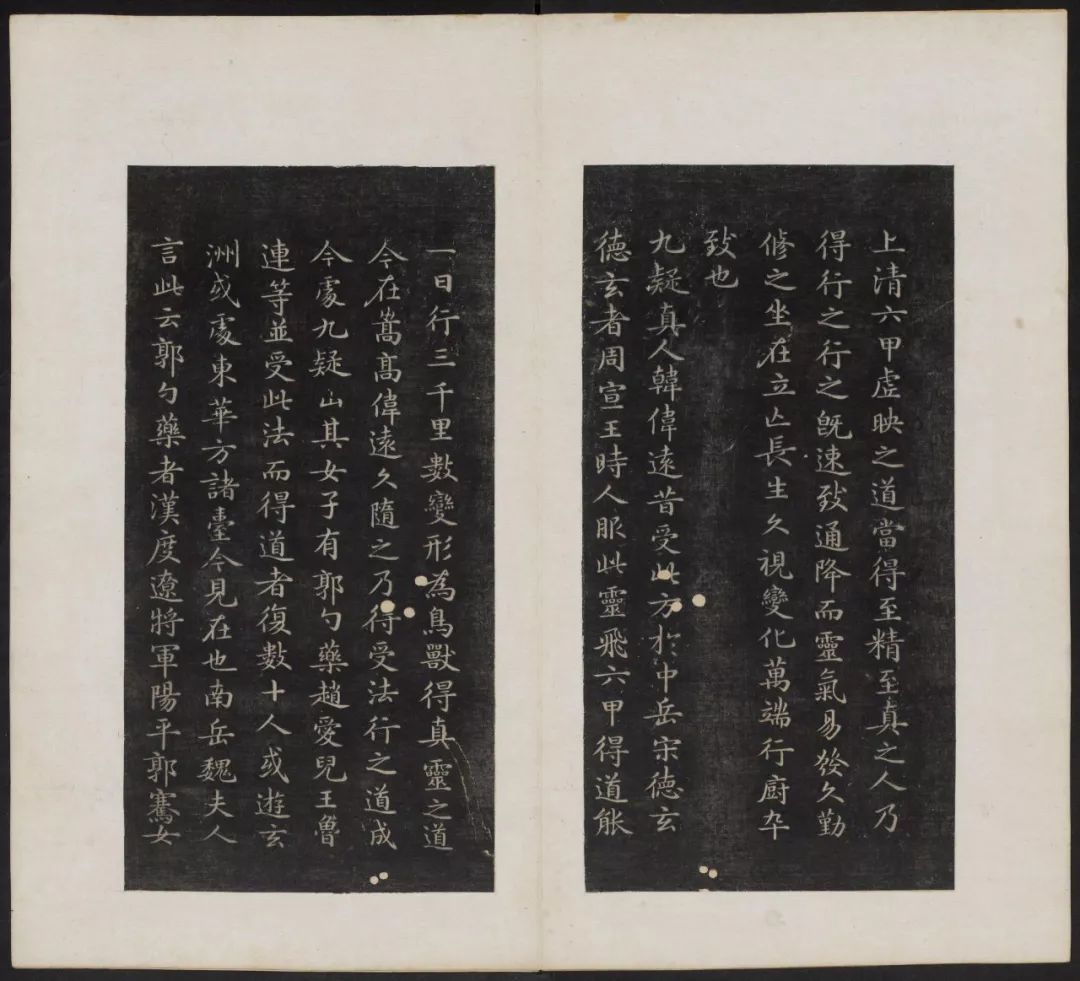 上清六甲虚映之道當得至精至真之人乃
得行之行之既速致通降而靈氣易發久勤
修之坐在立亾長生久視變化萬端行廚卒
致也
九疑真人韓偉遠昔受此方於中岳宋德玄
德玄者周宣王時人服此靈飛六甲得道能
一日行三千里數變形為鳥獸得真靈之道
今在嵩高偉遠久隨之乃得受法行之道成
今處九疑山其女子有郭勺藥趙愛兒王魯
連等並受此法而得道者復數十人或遊玄
洲或處東華方諸臺今見在也南岳魏夫人
言此云郭勺藥者漢度遼將軍陽平郭騫女